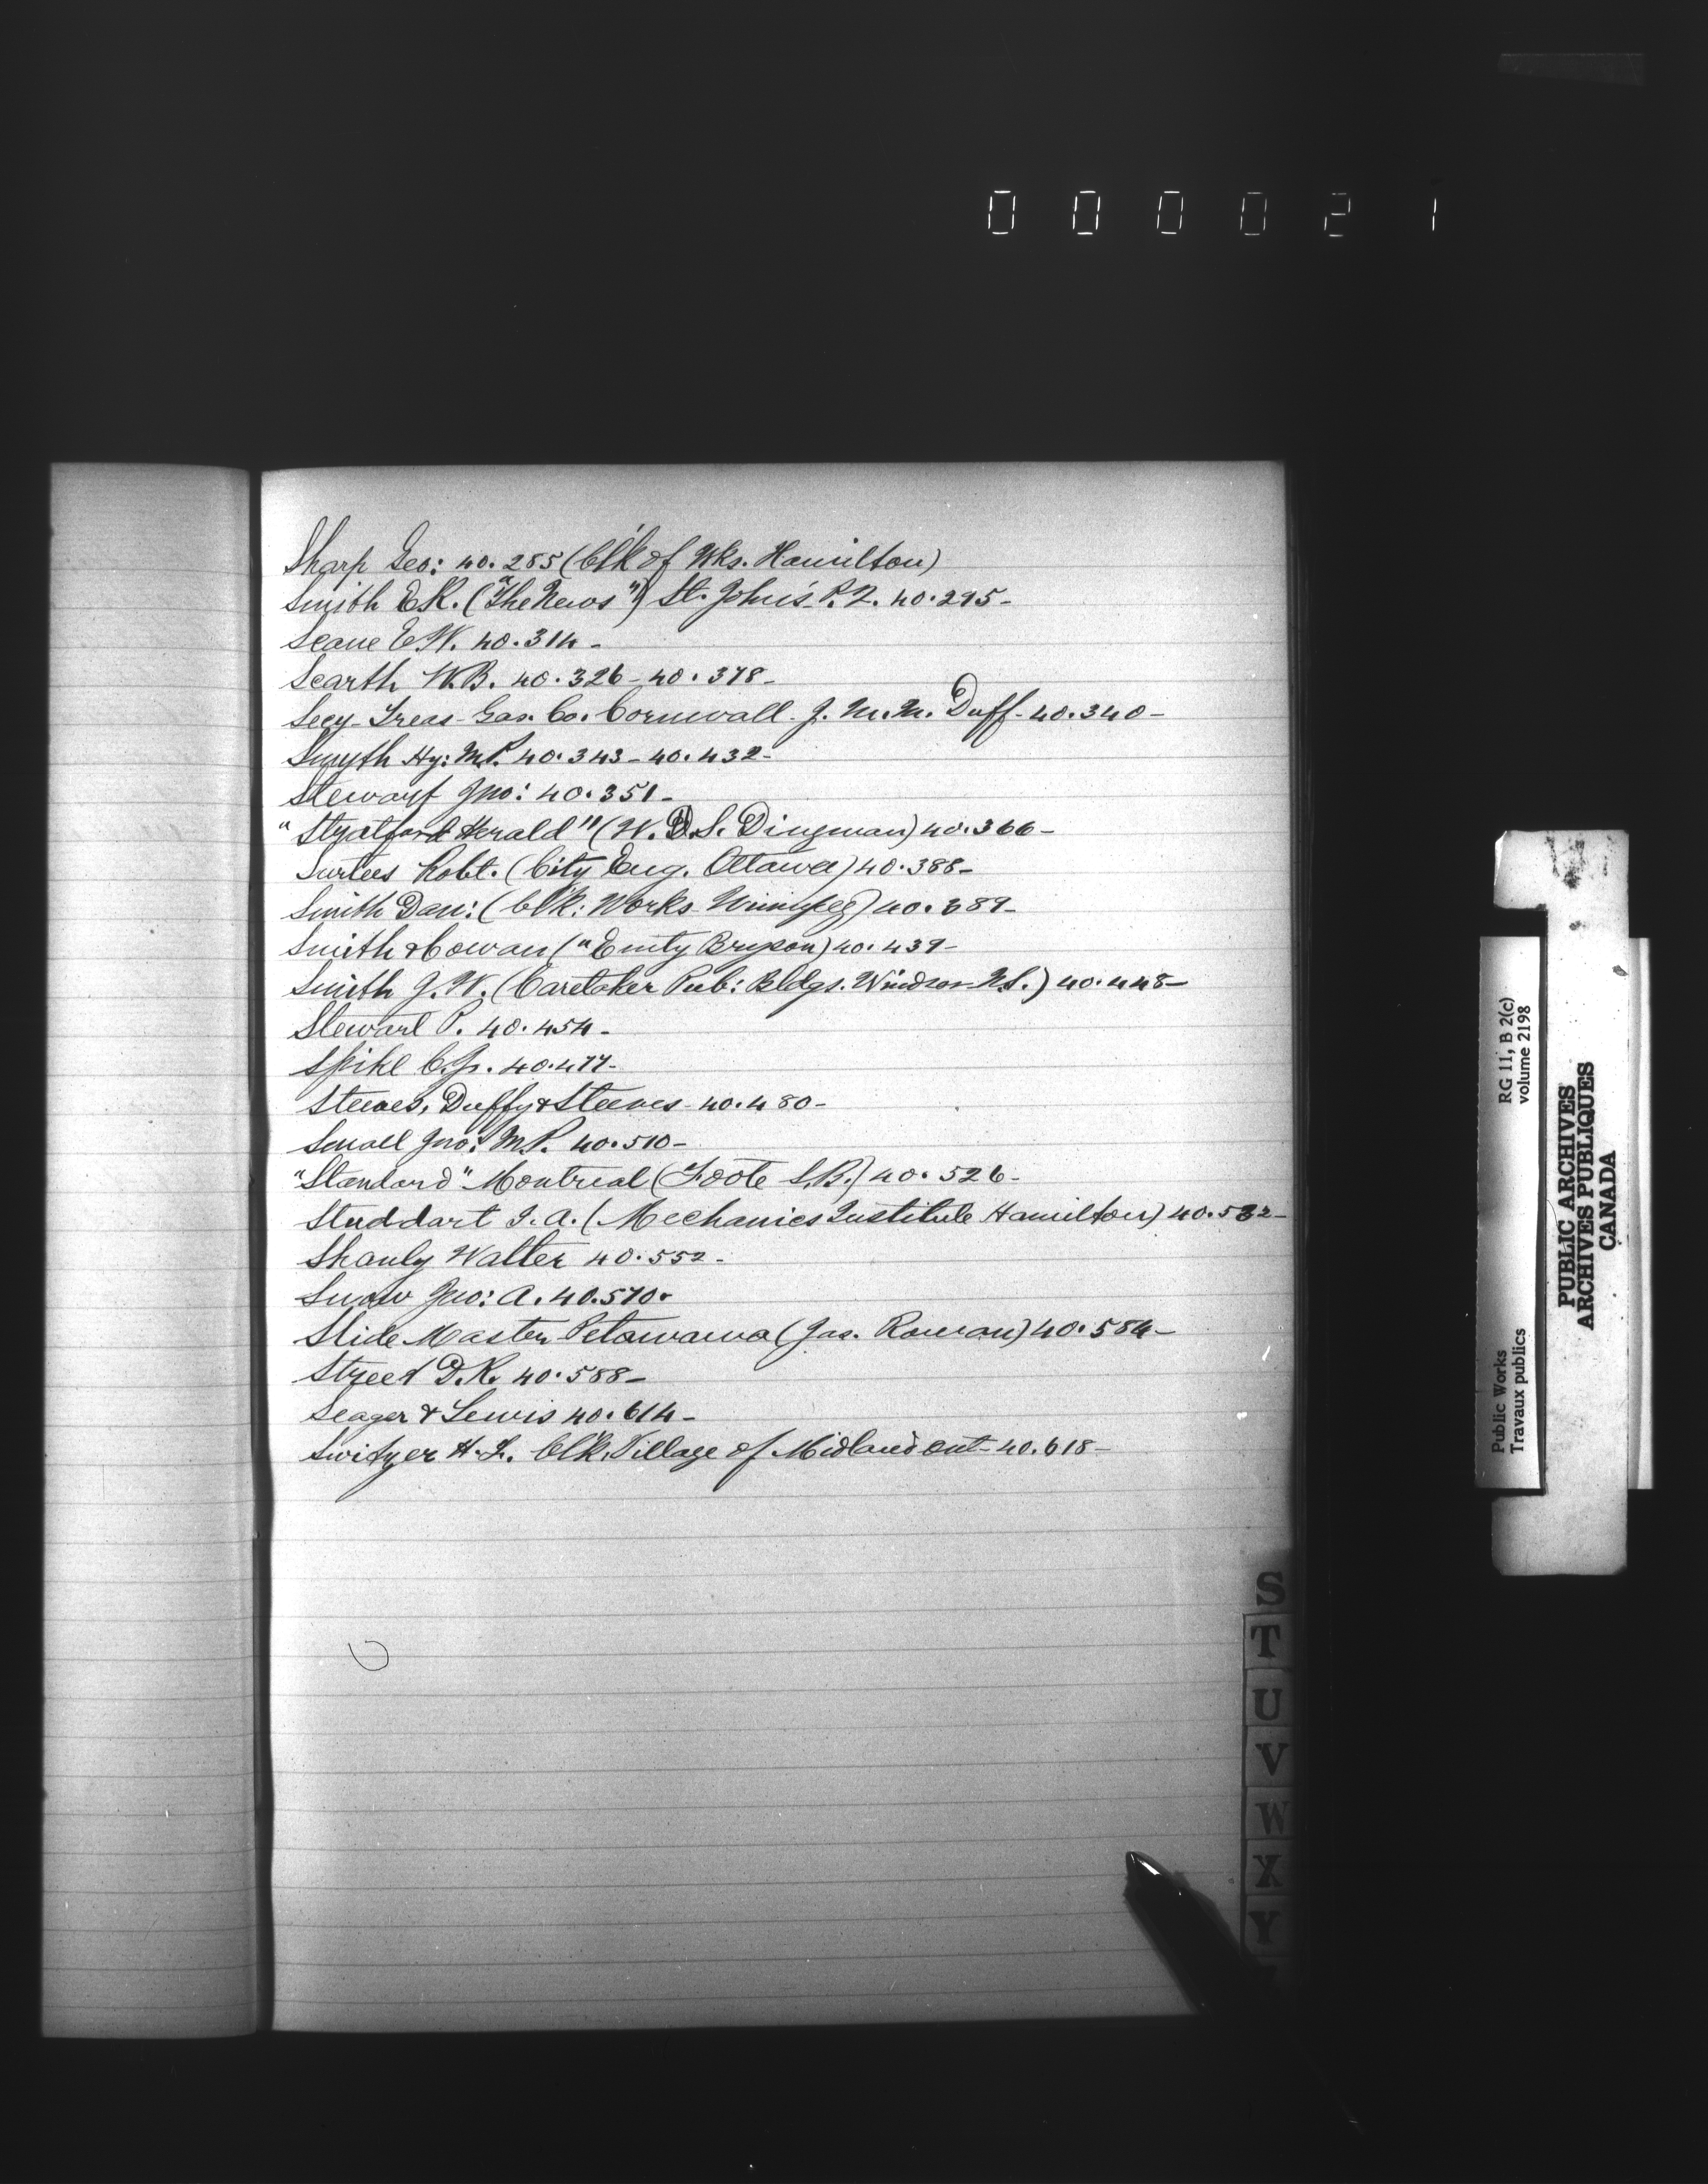 000021
Sharp Geo: 40.285 (Cl'k of Wks. Hamilton)
Smith E.R. ("The News") St. John's P.Q. 40.295-
Seane E.W. 40.314-
Scarth W.B. 40.326-40.378-
Secy-Treas-Gas. Co. Cornwall. J. M. M. Duff-40.340-
Smyth Hy: M.P. 40.343-40.432-
Stewart Jno: 40.351-
"Stratford Herald" (W.D.S. Dingman) 40.366-
Surtees Robt. (City Eng. Ottawa) 40.388-
Smith Dan: (Cl'k: Works Winnipeg) 40.389-
Smith & Cowan ("Emity Bryson) 40.439-
Smith J.W. (Caretaker Pub: Bldgs. Windsor N.S.) 40.448-
Stewart P. 40.454-
Spike C.J. 40.477-
Steeves, Duffy & Steeves-40.480-
Small Jno: M.P. 40.510-
"Standard" Montreal (Foote S.B.) 40.526-
Studdart J.A. (Mechanics Institute Hamilton) 40.532-
Shanly Walter 40.552-
Snow Jno: A. 40.570-
Slide Master Petawawa (Jas. Rowan) 40.584-
Street D.R. 40.588-
Seager & Lewis 40.614-
Switzer H.L. Cl'k. Village of Midland Ont-40.618-
S
T
U
V
W
X
Y
Public Works
Travaux publics
RG 11, B 2(c)
volume 2198
PUBLIC ARCHIVES
ARCHIVES PUBLIQUES
CANADA